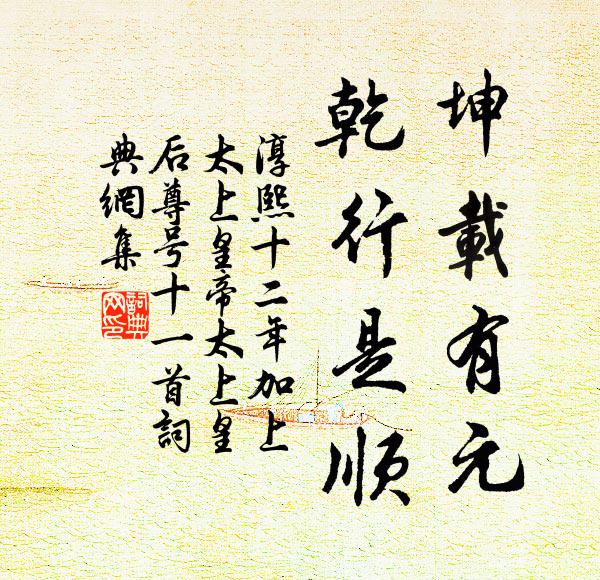 坤載有元
乾行是順
淳熙十二年加上
太上皇帝太上皇
后尊号十一首詞
典網集
詞典网印